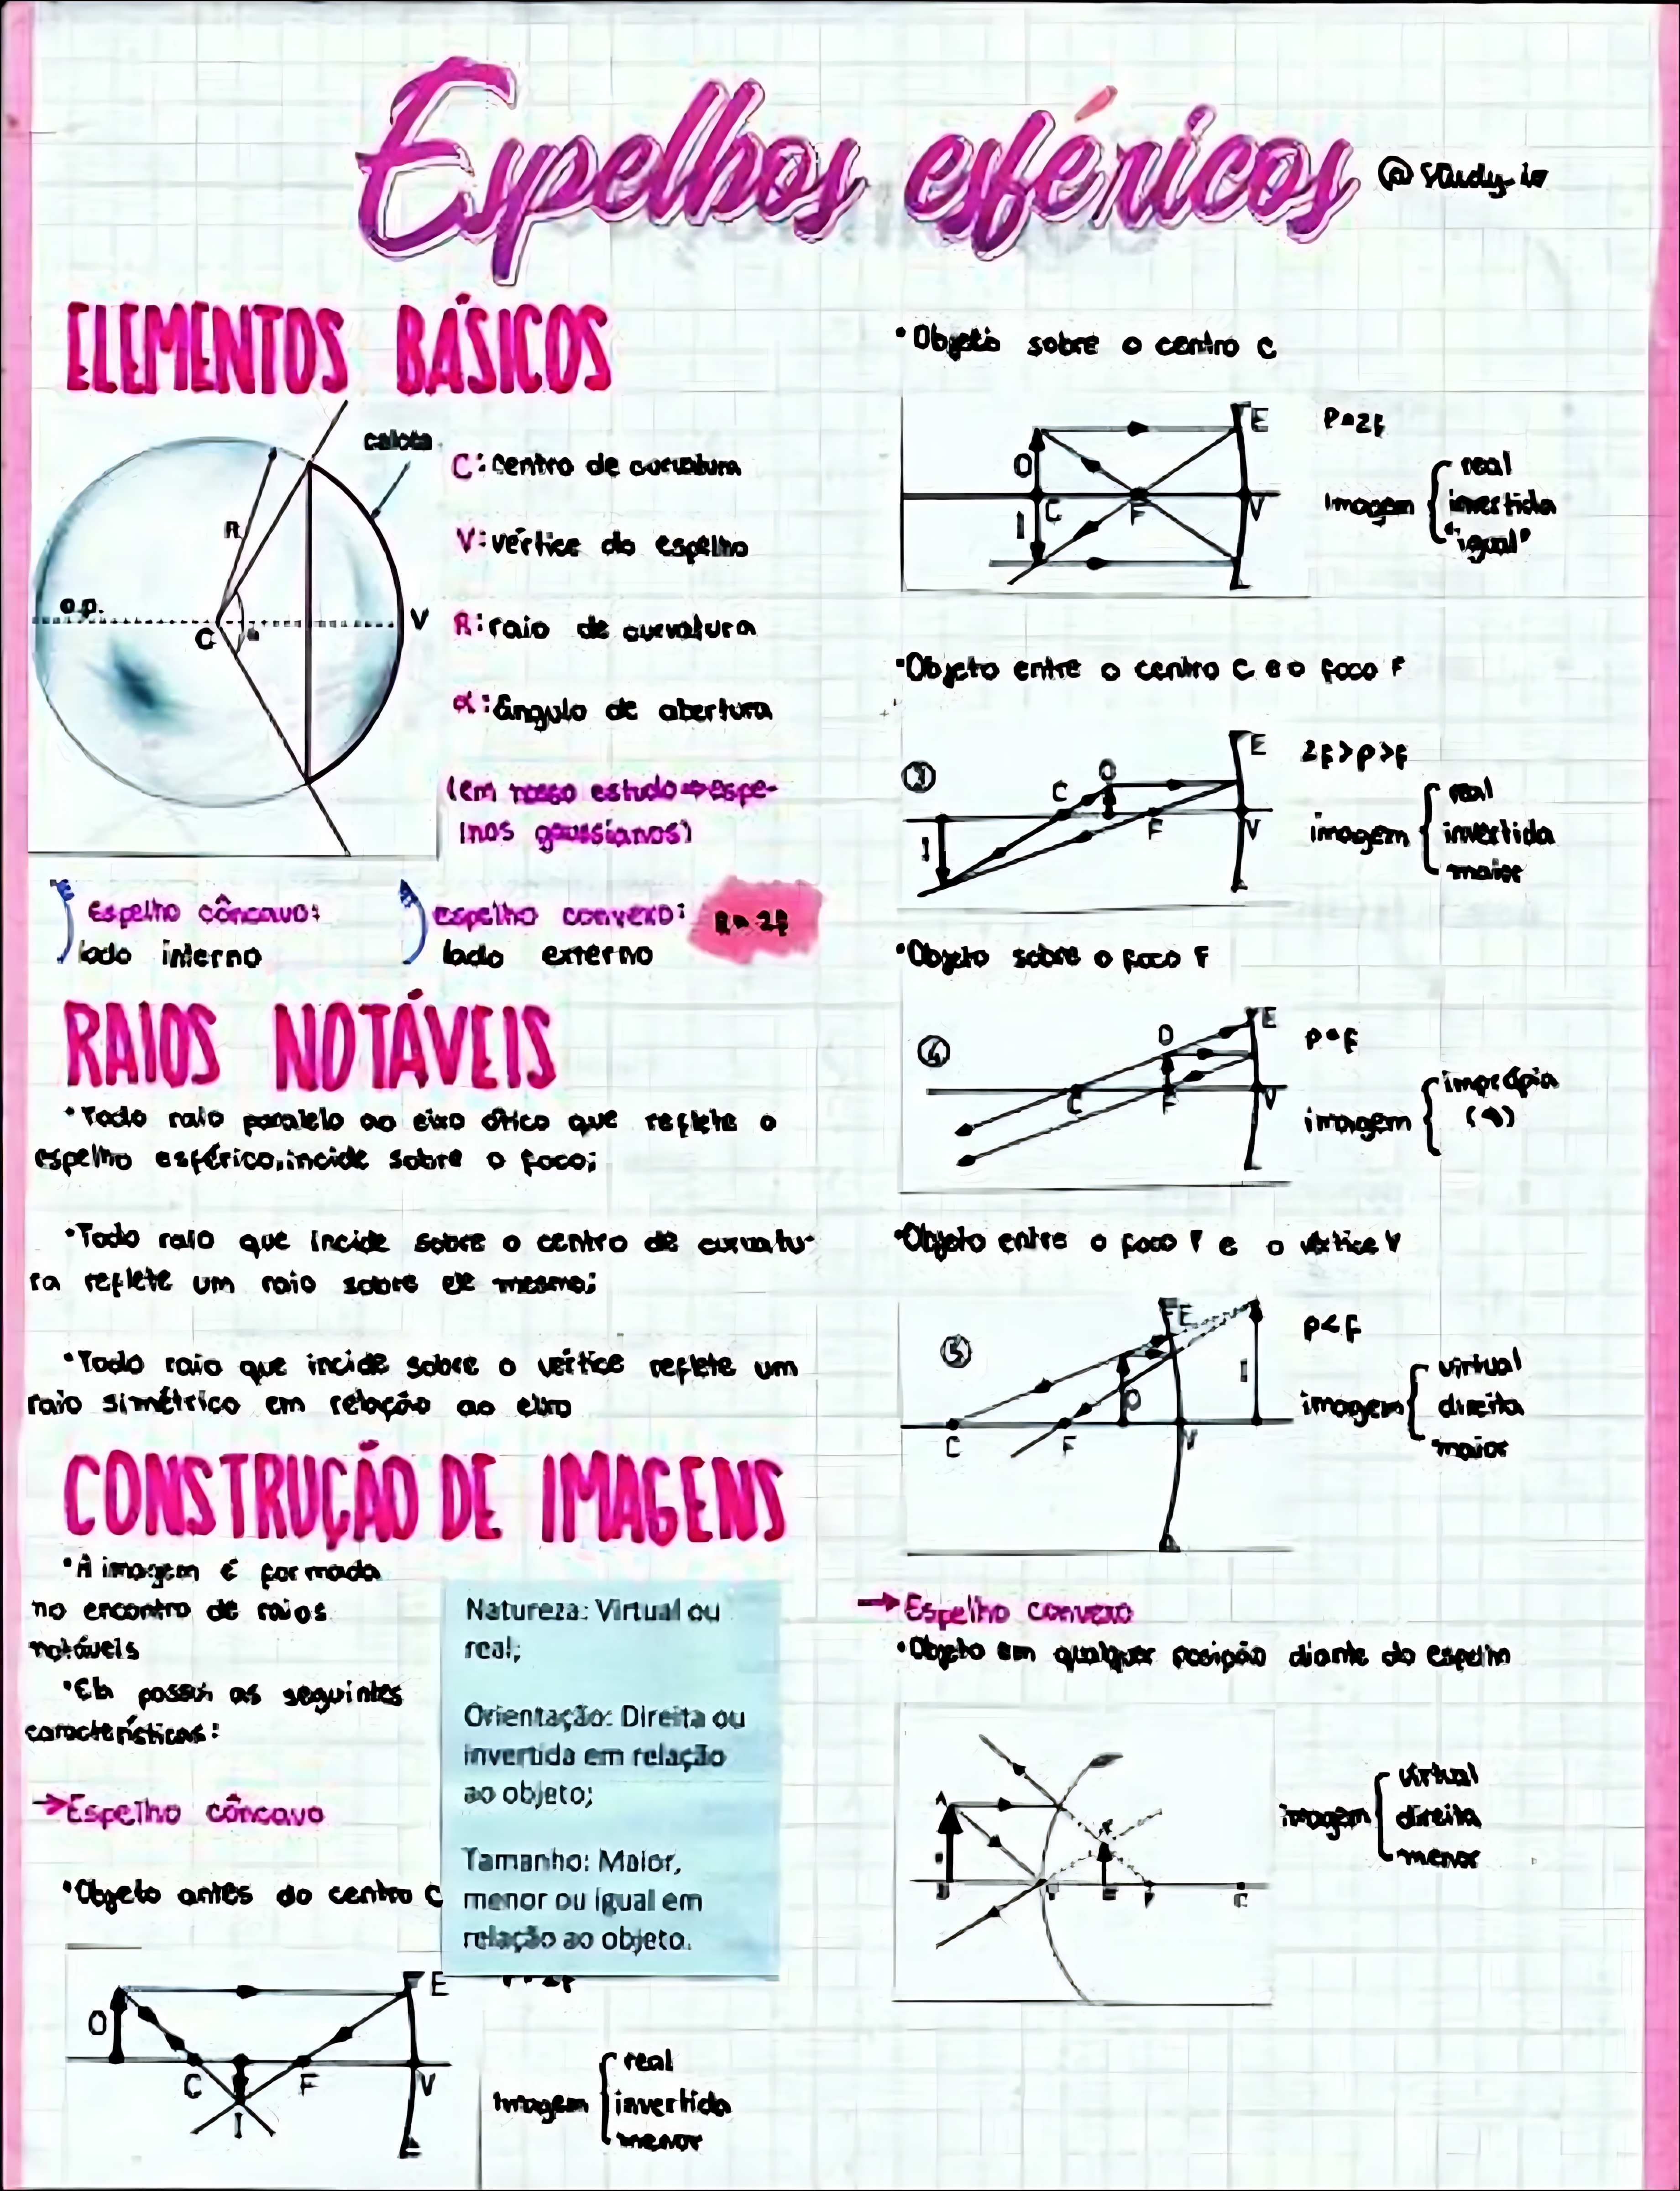 Espelhos esféricos
ELEMENTOS BÁSICOS
calota
R
e.p.
C
V
C: Centro de curvatura
V: vértice do espelho
R: raio de curvatura
α: ângulo de abertura
(em nosso estudo ⇒ espe-
lhos gaussianos)
Espelho côncavo:
lado interno
espelho convexo:
lado externo
R = 2f
RAIOS NOTÁVEIS
•Todo raio paralelo ao eixo ótico que reflete o
espelho esférico, incide sobre o foco;
•Todo raio que incide sobre o centro de curvatu-
ra reflete um raio sobre ele mesmo;
•Todo raio que incide sobre o vértice reflete um
raio simétrico em relação ao eixo
CONSTRUÇÃO DE IMAGENS
•A imagem é formada
no encontro de raios
notáveis
•Ela possui as seguintes
características:
Natureza: Virtual ou
real;
Orientação: Direita ou
invertida em relação
ao objeto;
Tamanho: Maior,
menor ou igual em
relação ao objeto.
→Espelho côncavo
•Objeto antes do centro C
O
E
C
F
V
I
imagem
real
invertida
menor
•Objeto sobre o centro C
O
E
C
F
V
I
P=2f
Imagem
real
invertida
"igual"
•Objeto entre o centro C e o foco F
O
E
C
F
V
I
2f>p>f
imagem
real
invertida
maior
•Objeto sobre o foco F
4
O
E
C
F
V
p=f
imagem
imprópia
•Objeto entre o foco F e o vértice V
5
E
O
I
C
F
V
p<f
imagem
virtual
direita
maior
→Espelho convexo
•Objeto em qualquer posição diante do espelho
A
C
imagem
virtual
direita
menor